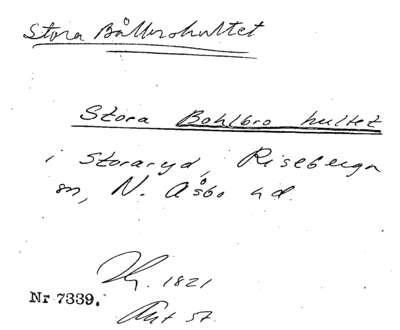 Stora Bållerohultet
Stora Bohlbro hultet
i Storaryd, Riseberga
sn, N. Åsbo hd.
Hg. 1821
Nr 7339.
Akt st.